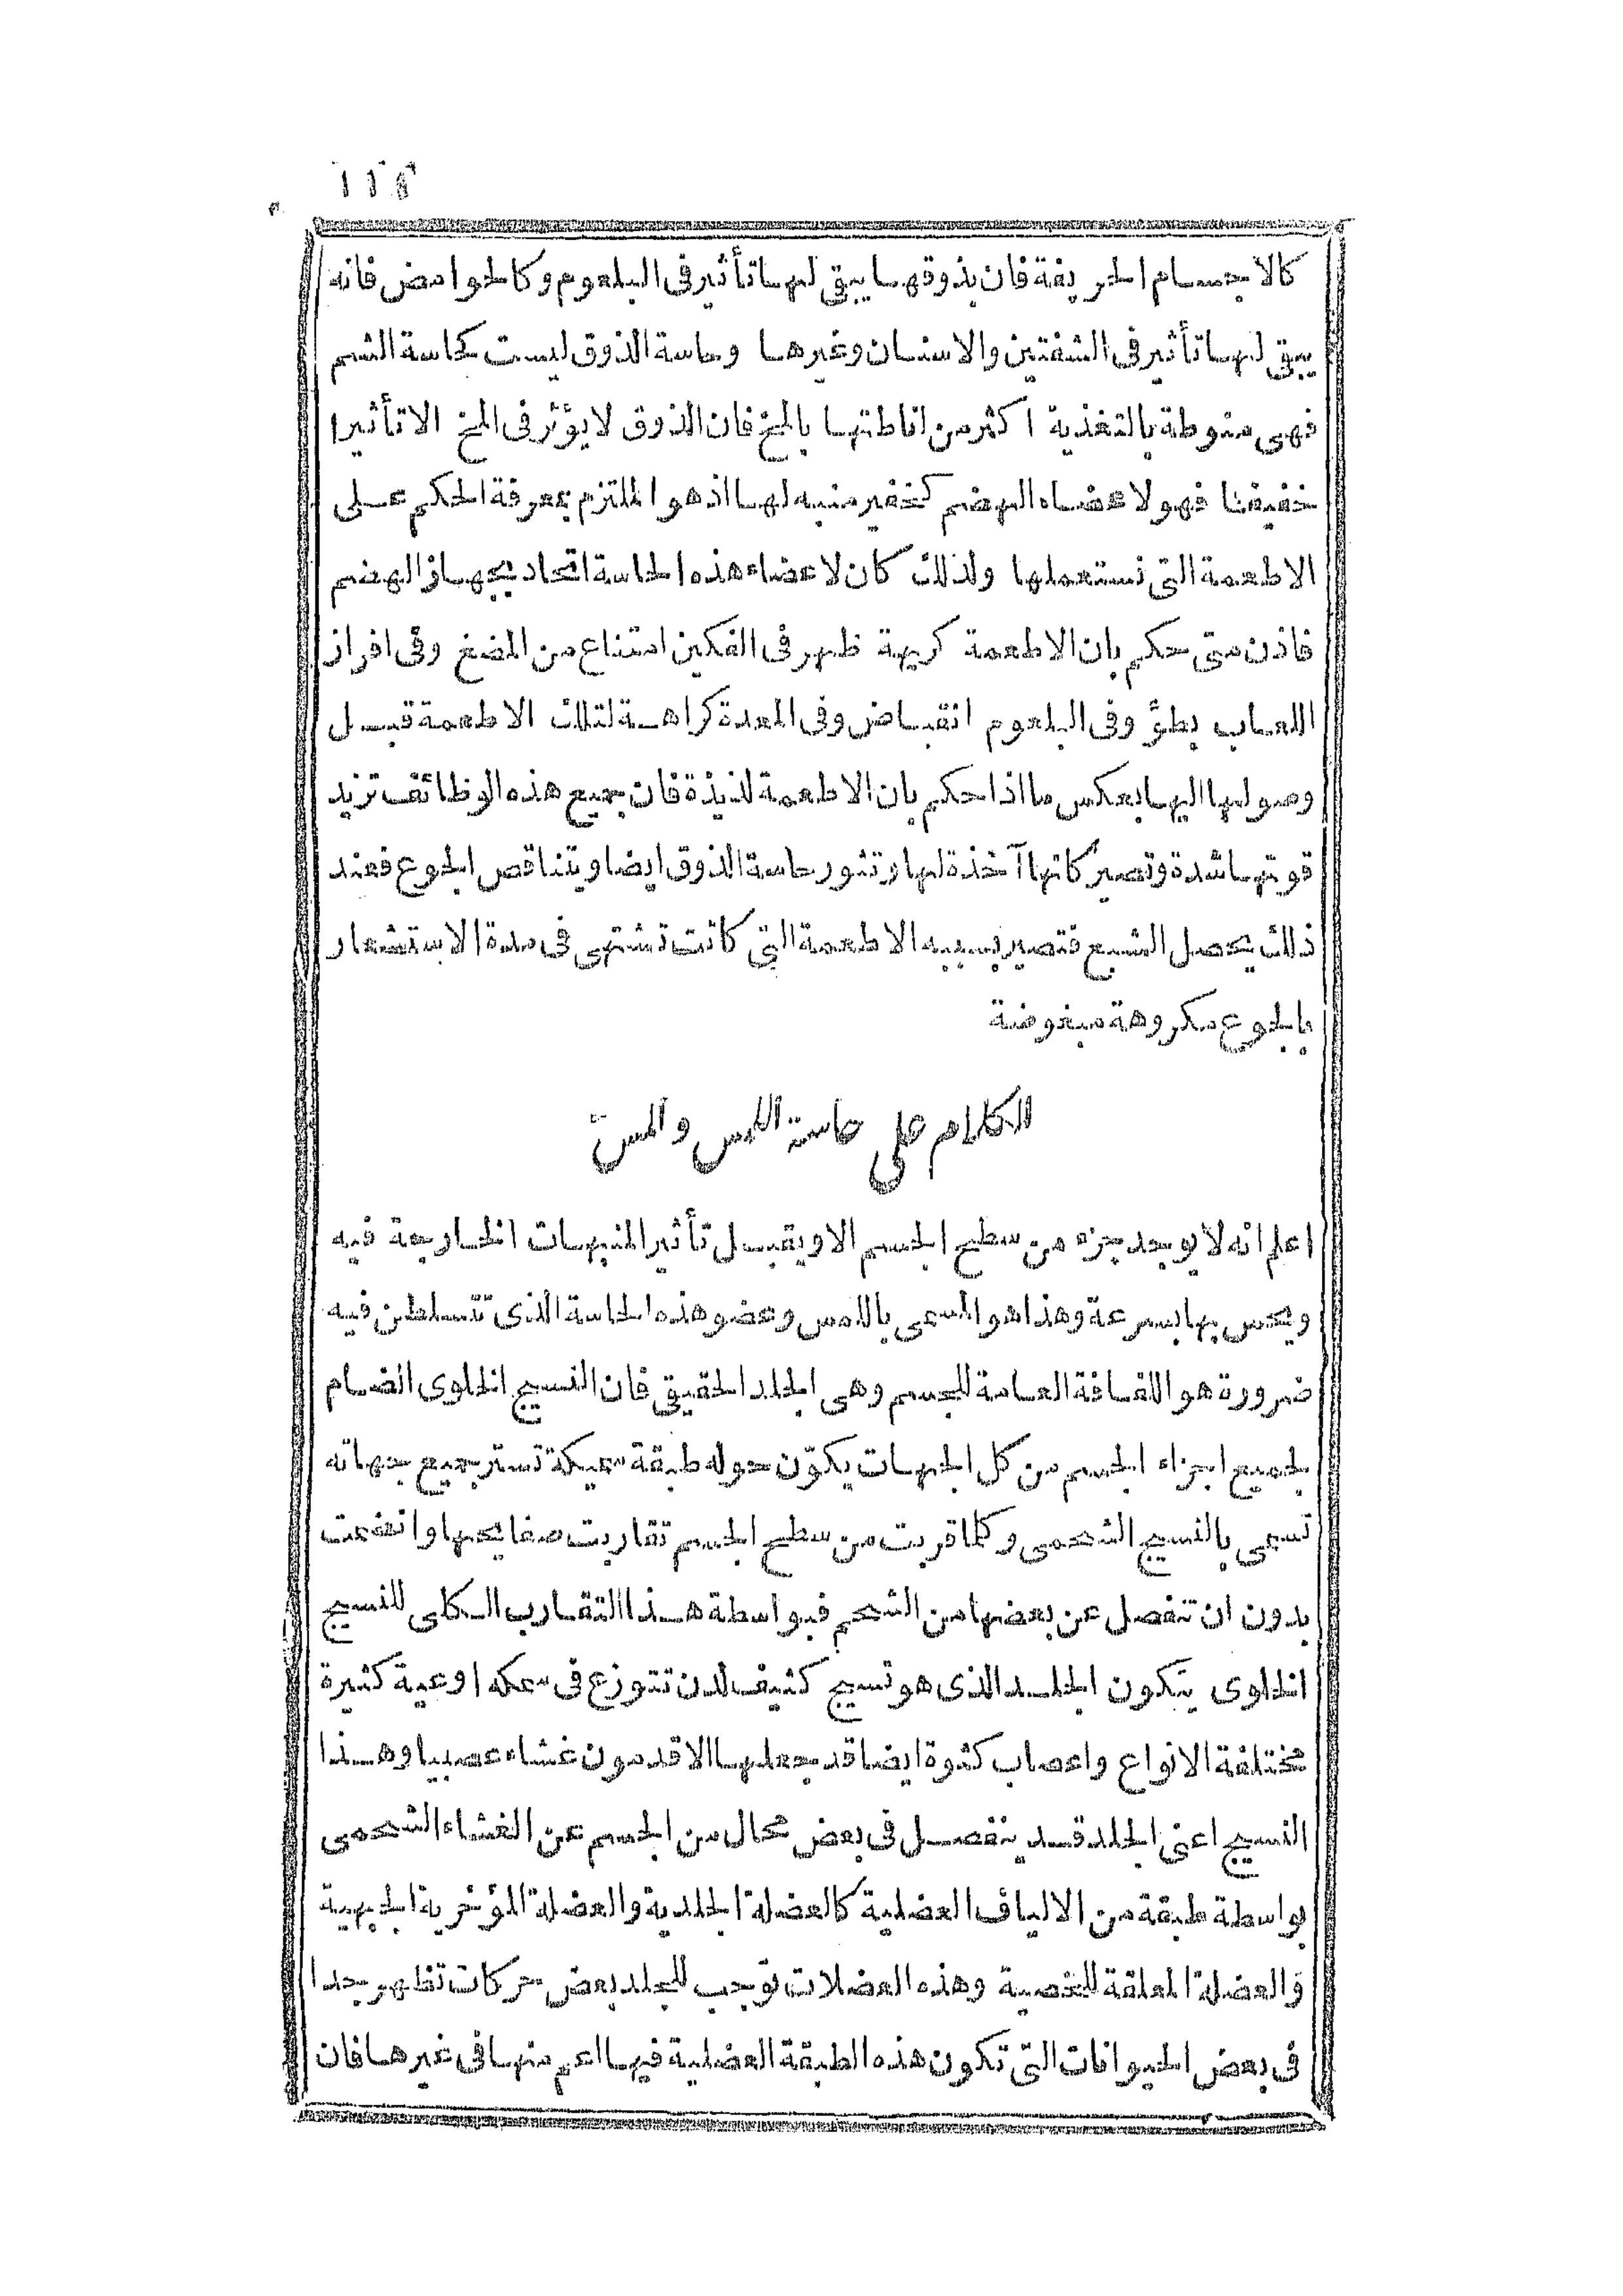 كالاجسام الحريفة فان بذوقها يبقى لها تأثير فى البلعوم وكالحوامض فانه
يبقى لها تأثير فى الشفتين والاسنان وغيرها وحاسة الذوق ليست كحاسة الشم
فهى منوطة بالتغذية اكثر من اناطتها بالمخ فان الذوق لا يؤثر فى المخ الا تأثيرا
خفيفا فهو لاعضاء الهضم كخفير منبه لها اذ هو الملتزم بمعرفة الحكم على
الاطعمة التى نستعملها ولذلك كان لاعضاء هذه الحاسة اتحاد بجهاز الهضم
فاذن متى حكم بان الاطعمة كريهة ظهر فى الفكين امتناع من المضغ وفى افراز
اللعاب بطؤ وفى البلعوم انقباض وفى المعدة كراهة لتلك الاطعمة قبل
وصولها اليها بعكس ما اذا حكم بان الاطعمة لذيذة فان جميع هذه الوظائف تزيد
قوتها شدة وتصير كانها آخذة لها وتثور حاسة الذوق ايضا ويتناقص الجوع فعند
ذلك يحصل الشبع فتصير بسببه الاطعمة التى كانت تشتهى فى مدة الاستشعار
بالجوع مكروهة مبغوضة
الكلام على حاسة اللمس والمس
اعلم انه لا يوجد جزء من سطح الجسم الا ويقبل تأثير المنبهات الخارجة فيه
ويحس بها بسرعة وهذا هو المسمى باللمس وعضو هذه الحاسة الذى تتسلطن فيه
ضرورة هو اللفافة العامة للجسم وهى الجلد الحقيقى فان النسيج الخلوى الضام
لجميع اجزاء الجسم من كل الجهات يكوّن حوله طبقة سميكة تستر جميع جهاته
تسمى بالنسيج الشحمى وكلما قربت من سطح الجسم تقاربت صفايحها وانضمت
بدون ان تنفصل عن بعضها من الشحم فبواسطة هذا التقارب الكلى للنسيج
الخلوى يتكون الجلد الذى هو نسيج كثيف لدن تتوزع فى سمكه اوعية كثيرة
مختلفة الانواع واعصاب كثيرة ايضا قد جعلها الاقدمون غشاء عصبيا وهذا
النسيج اعنى الجلد قد ينفصل فى بعض محال من الجسم عن الغشاء الشحمى
بواسطة طبقة من الالياف العضلية كالعضلة الجلدية والعضلة المؤخرية الجبهية
والعضلة المعلقة للخصية وهذه العضلات توجب للجلد بعض حركات تظهر جدا
فى بعض الحيوانات التى تكون هذه الطبقة العضلية فيها اعم منها فى غيرها فان